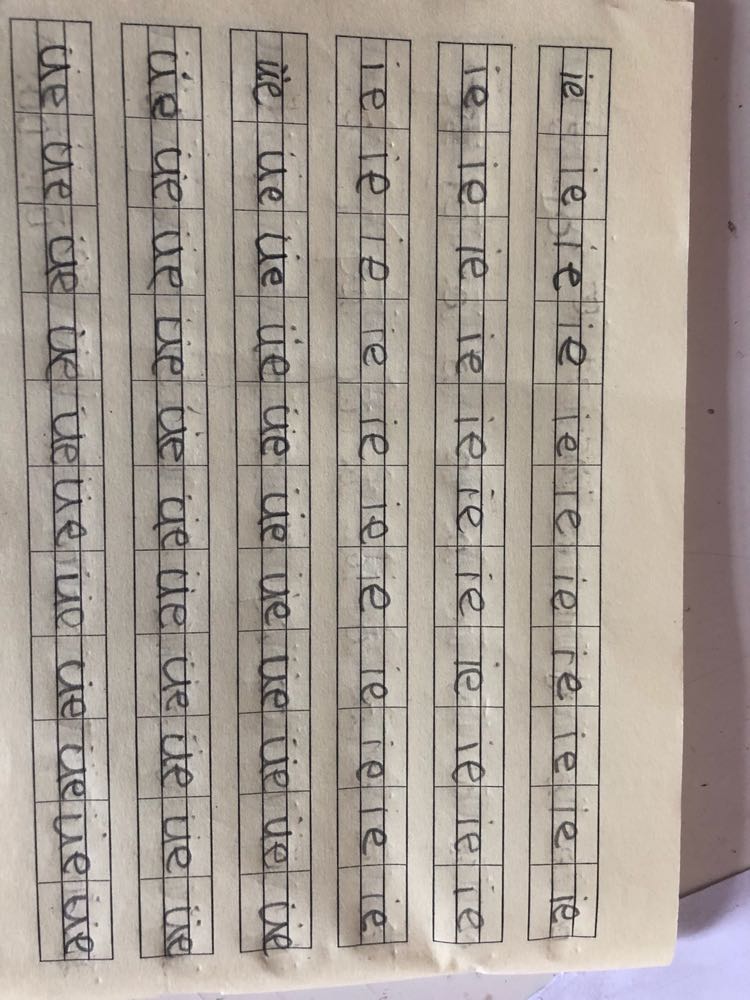 ie ie ie ie ie ie ie ie ie ie ie
ie ie ie ie ie ie ie ie ie ie ie
ie ie ie ie ie ie ie ie ie ie ie
üe üe üe üe üe üe üe üe üe üe üe
üe üe üe üe üe üe üe üe üe üe üe
üe üe üe üe üe üe üe üe üe üe üe